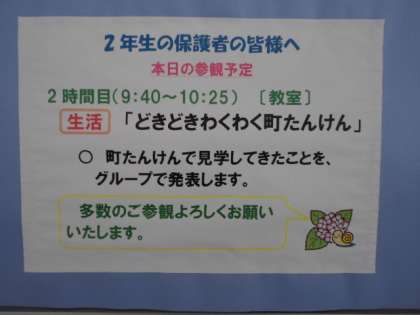 ２年生の保護者の皆様へ
本日の参観予定
２時間目(９:４０～１０:２５) 〔教室〕
生活 「どきどきわくわく町たんけん」
○ 町たんけんで見学してきたことを、
グループで発表します。
多数のご参観よろしくお願い
いたします。